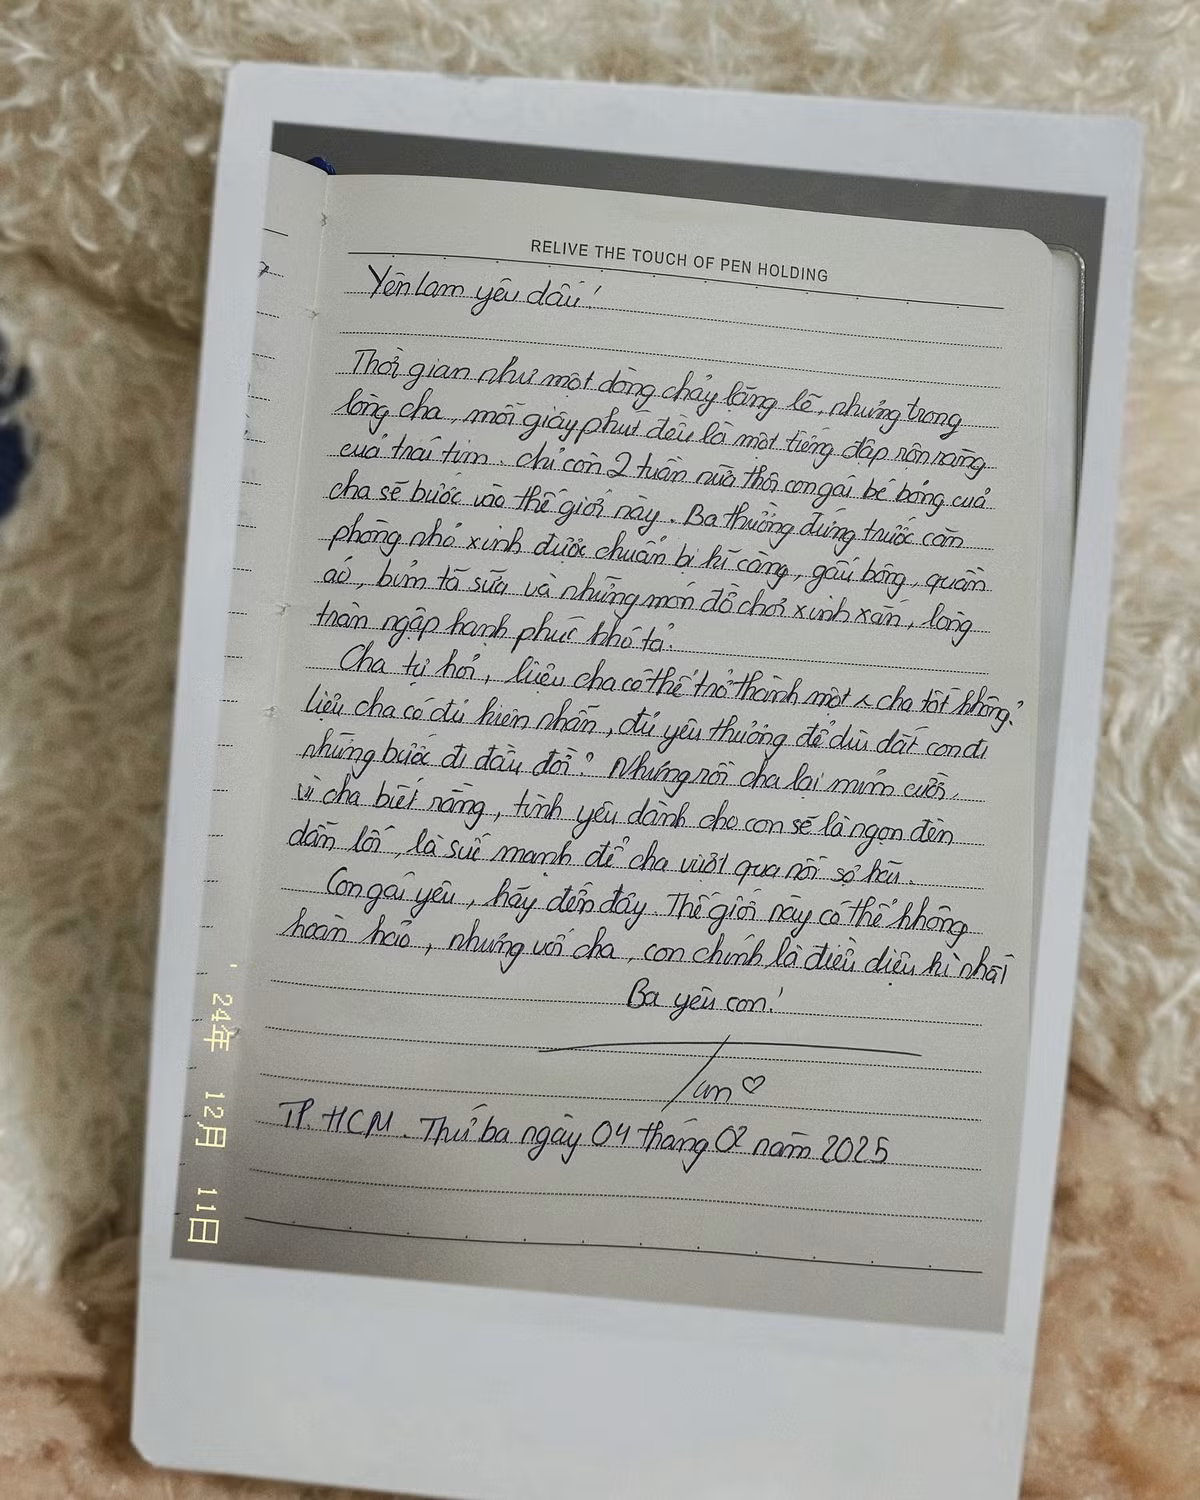 RELIVE THE TOUCH OF PEN HOLDING
Yên Lam yêu dấu!
Thời gian như một dòng chảy lặng lẽ, nhưng trong
lòng cha, mỗi giây phút đều là một tiếng đập rộn ràng
của trái tim. Chỉ còn 2 tuần nữa thôi con gái bé bỏng của
cha sẽ bước vào thế giới này. Ba thường đứng trước căn
phòng nhỏ xinh được chuẩn bị kĩ càng, gấu bông, quần
áo, bỉm tã sữa và những món đồ chơi xinh xắn, lòng
tràn ngập hạnh phúc khó tả.
Cha tự hỏi, liệu cha có thể trở thành một cha tốt không?
Liệu cha có đủ kiên nhẫn, đủ yêu thương để dìu dắt con đi
những bước đi đầu đời? Nhưng rồi cha lại mỉm cười,
vì cha biết rằng, tình yêu dành cho con sẽ là ngọn đèn
dẫn lối, là sức mạnh để cha vượt qua nỗi sợ hãi.
Con gái yêu, hãy đến đây. Thế giới này có thể không
hoàn hảo, nhưng với cha, con chính là điều diệu kì nhất
Ba yêu con!
♡
TP. HCM. Thứ ba ngày 04 tháng 02 năm 2025
'24年 12月 11日